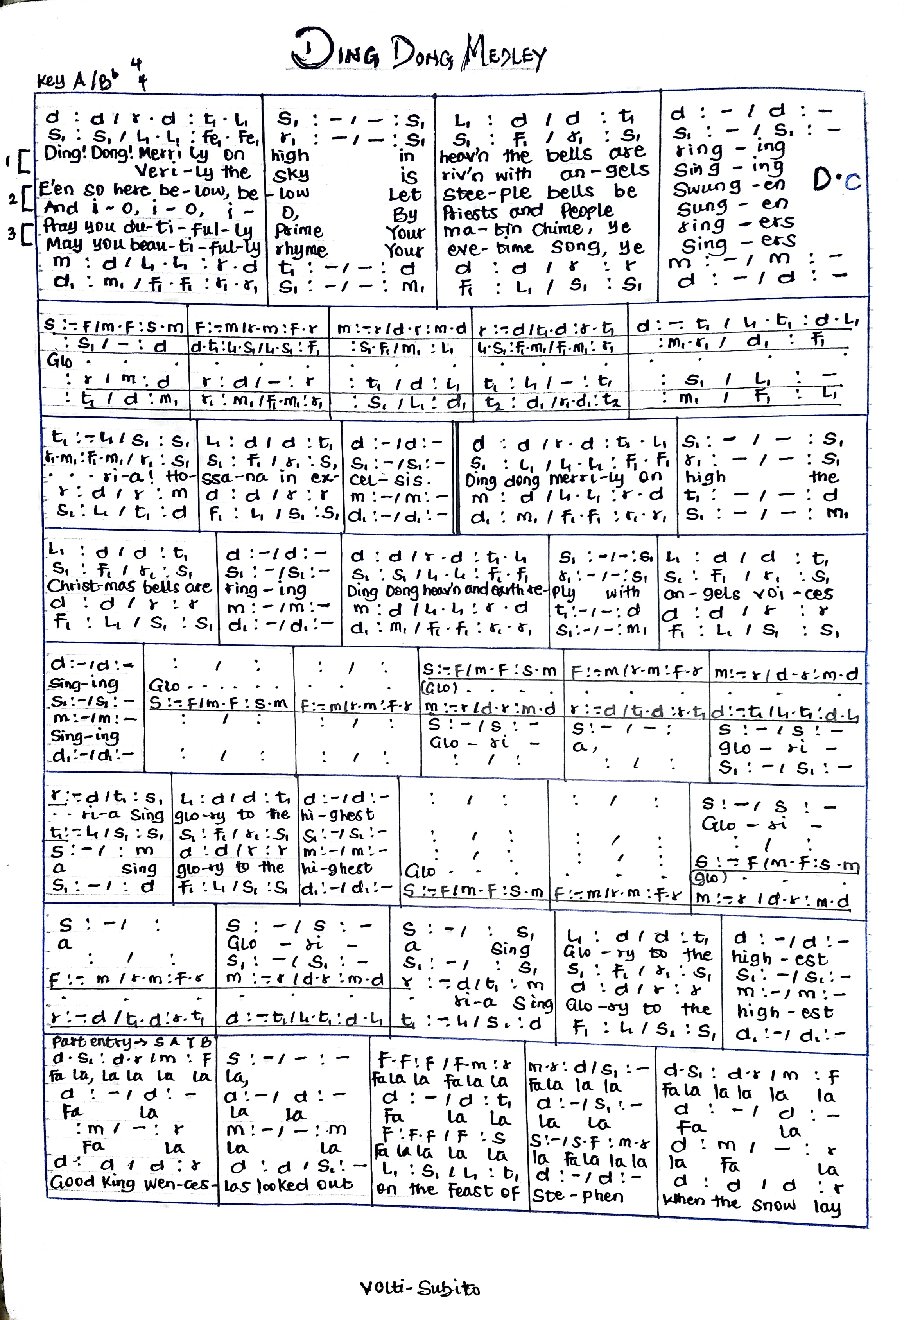 DING DONG MEDLEY
Key A/Bb 4/4
d : d / r . d : t₁ . L₁ | S₁ : - / - : S₁ | L₁ : d / d : t₁ | d : - / d : -
S₁ : S₁ / L₁ . L₁ : Fe₁ . Fe₁ | r₁ : - / - : S₁ | S₁ : F₁ / r₁ : S₁ | S₁ : - / S₁ : -
1 Ding! Dong! Merri ly on | high in | heav'n the bells are | ring - ing
Veri-ly the | sky is | riv'n with an-gels | Sing - ing
2 E'en so here be-low, be | -low Let | Stee-ple bells be | Swung - en D.C
And i-o, i-o, i- | O, By | Priests and People | Sung - en
3 Pray you du-ti-ful-ly | Prime Your | ma-tin chime, ye | ring - ers
May you beau-ti-ful-ly | rhyme Your | eve-time song, ye | Sing - ers
m : d / L₁ . L₁ : r . d | t₁ : - / - : d | d : d / r : r | m : - / m : -
d₁ : m₁ / F₁ . F₁ : r₁ . r₁ | S₁ : - / - : m₁ | F₁ : L₁ / S₁ : S₁ | d : - / d : -
S :-. F / m . F : S . m | F :-. m / r . m : F . r | m :-. r / d . r : m . d | r :-. d / t₁ . d : r . t₁ | d :-. t₁ / L₁ . t₁ : d . L₁
: S₁ / - : d | d . t₁ : L₁ . S₁ / L₁ . S₁ : F₁ | : S₁ . F₁ / m₁ : L₁ | L₁ . S₁ : F₁ . m₁ / F₁ . m₁ : r₁ | : m₁ . r₁ / d₁ : F₁
Glo . . . | . . | . . . | . . | . . .
: r / m : d | r : d / - : r | : t₁ / d : L₁ | t₁ : L₁ / - : t₁ | : S₁ / L₁ : -
: t₂ / d : m₁ | r₁ : m₁ / F₁ . m₁ : r₁ | : S₁ / L₁ : d₁ | t₂ : d₁ / r₁ . d₁ : t₂ | : m₁ / F₁ : L₁
t₁ :-. L₁ / S₁ : S₁ | L₁ : d / d : t₁ | d : - / d : - | d : d / r . d : t₁ . L₁ | S₁ : - / - : S₁
r₁ . m₁ : F₁ . m₁ / r₁ : S₁ | S₁ : F₁ / r₁ : S₁ | S₁ : - / S₁ : - | S₁ : L₁ / L₁ . L₁ : F₁ . F₁ | r₁ : - / - : S₁
. . ri-a! Ho- | ssa-na in ex- | cel-sis. | Ding dong merri-ly on | high the
r : d / r : m | d : d / r : r | m : - / m : - | m : d / L₁ . L₁ : r . d | t₁ : - / - : d
S₁ : L₁ / t₁ : d | F₁ : L₁ / S₁ : S₁ | d₁ : - / d₁ : - | d₁ : m₁ / F₁ . F₁ : r₁ . r₁ | S₁ : - / - : m₁
L₁ : d / d : t₁ | d : - / d : - | d : d / r . d : t₁ . L₁ | S₁ : - / - : S₁ | L₁ : d / d : t₁
S₁ : F₁ / r₁ : S₁ | S₁ : - / S₁ : - | S₁ : S₁ / L₁ . L₁ : F₁ . F₁ | r₁ : - / - : S₁ | S₁ : F₁ / r₁ : S₁
Christ-mas bells are | ring - ing | Ding Dong heav'n and earth re- | ply with | an-gels voi-ces
d : d / r : r | m : - / m : - | m : d / L₁ . L₁ : r . d | t₁ : - / - : d | d : d / r : r
F₁ : L₁ / S₁ : S₁ | d₁ : - / d₁ : - | d₁ : m₁ / F₁ . F₁ : r₁ . r₁ | S₁ : - / - : m₁ | F₁ : L₁ / S₁ : S₁
d : - / d : - | : / : | : / : | S :-. F / m . F : S . m | F :-. m / r . m : F . r | m :-. r / d . r : m . d
Sing-ing | Glo . . . . . | . . . | (Glo) . . . | . . | . . .
S₁ : - / S₁ : - | S :-. F / m . F : S . m | F :-. m / r . m : F . r | m :-. r / d . r : m . d | r :-. d / t₁ . d : r . t₁ | d :-. t₁ / L₁ . t₁ : d . L₁
m : - / m : - | : / : | : / : | S : - / S : - | S : - / - : | S : - / S : -
Sing-ing | Glo - ri - | a, | glo - ri -
d₁ : - / d₁ : - | : / : | : / : | : / : | : / : | S₁ : - / S₁ : -
r :-. d / t₁ : S₁ | L₁ : d / d : t₁ | d : - / d : - | : / : | : / : | S : - / S : -
. . ri-a Sing | glo-ry to the | hi-ghest | Glo - ri -
t₁ :-. L₁ / S₁ : S₁ | S₁ : F₁ / r₁ : S₁ | S₁ : - / S₁ : - | : / : | : / : | : / :
S : - / : m | d : d / r : r | m : - / m : - | : / : | : / : | S :-. F / m . F : S . m
a sing | glo-ry to the | hi-ghest | Glo . . . | . . . | (glo) . . .
S₁ : - / : d | F₁ : L₁ / S₁ : S₁ | d₁ : - / d₁ : - | S :-. F / m . F : S . m | F :-. m / r . m : F . r | m :-. r / d . r : m . d
S : - / : | S : - / S : - | S : - / : S₁ | L₁ : d / d : t₁ | d : - / d : -
a | Glo - ri - | a Sing | Glo-ry to the | high - est
: / : | S₁ : - / S₁ : - | S₁ : - / : S₁ | S₁ : F₁ / r₁ : S₁ | S₁ : - / S₁ : -
F :-. m / r . m : F . r | m :-. r / d . r : m . d | r :-. d / t₁ : m | d : d / r : r | m : - / m : -
. . . | . . . | . ri-a Sing | Glo-ry to the | high - est
r :-. d / t₁ . d : r . t₁ | d :-. t₁ / L₁ . t₁ : d . L₁ | t₁ :-. L₁ / S₁ : d | F₁ : L₁ / S₁ : S₁ | d₁ : - / d₁ : -
Part entry → S A T B
d . S₁ : d . r / m : F | S : - / - : - | F . F : F / F . m : r | m . r : d / S₁ : - | d . S₁ : d . r / m : F
Fa la, la la la la | la, | Fa la la fa la la | Fa la la la | Fa la la la la la
d : - / d : - | d : - / d : - | d : - / d : t₁ | d : - / S₁ : - | d : - / d : -
Fa la | la la | Fa la la | la la | Fa la
: m / - : r | m : - / - : m | F : F . F / F : S | S : - / S . F : m . r | d : m / - : r
Fa la | la la | Fa la la la la | la fa la la la | la Fa la
d : d / d : r | d : d / S₁ : - | L₁ : S₁ / L₁ : t₁ | d : - / d : - | d : d / d : r
Good King Wen-ces- | las looked out | on the feast of | Ste-phen | when the snow lay
Volti-Subito